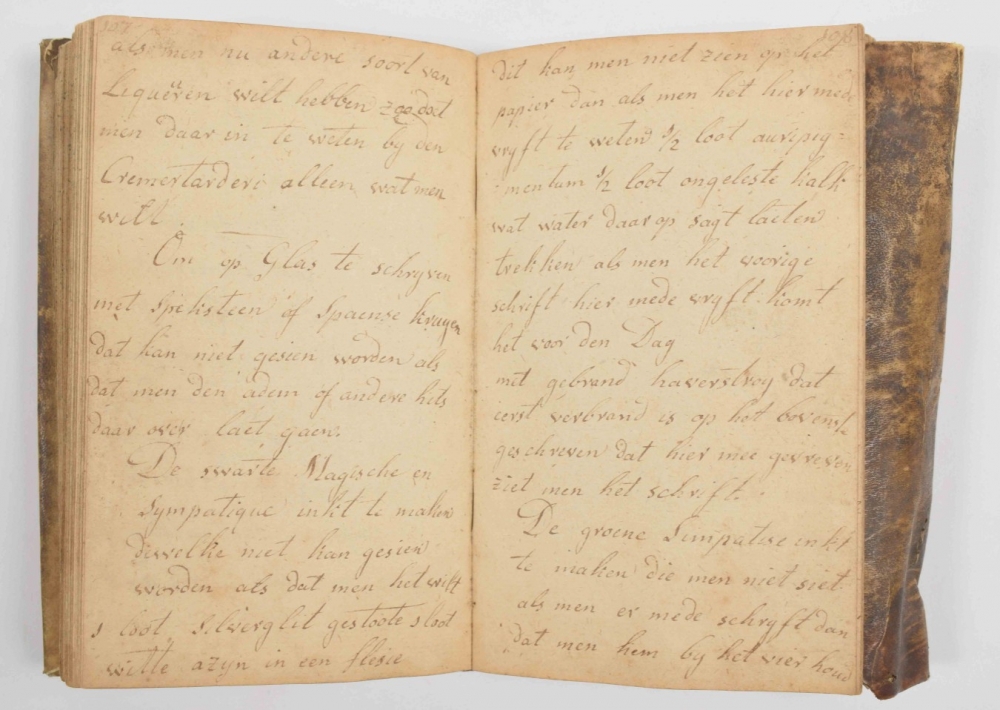 107
als men nu andere soort van
Liqueuren wilt hebben zoo dat
men daar in te weten by den
Cremertarderi alleen wat men
will
Om op Glas te schryven
met speksteen of Spaense kruyen
dat kan niet gesien worden als
dat men den adem of andere hits
daar over laet gaen.
De swarte Magische en
Sympatique inkt te maken
dewelke niet kan gesien
worden als dat men het wift
loot silverglit gestoote
witte azyn in een flesie
108
dit kan men niet zien op het
papier dan als men het hier mede
vryft te weten 1/2 loot auripig=
=mentum 1/2 loot ongeleste kalk
wat water daar op sagt laeten
trekken als men het voorige
schrift hier mede vryft komt
het voor den Dag
met gebrand haverstroy dat
eerst verbrand is op het bovenst
geschreven dat hier mee gevreven
ziet men het schrift.
De groene Simpatise inkt
te maken die men niet siet
als men er mede schryft dan
dat men hem by het vier houd